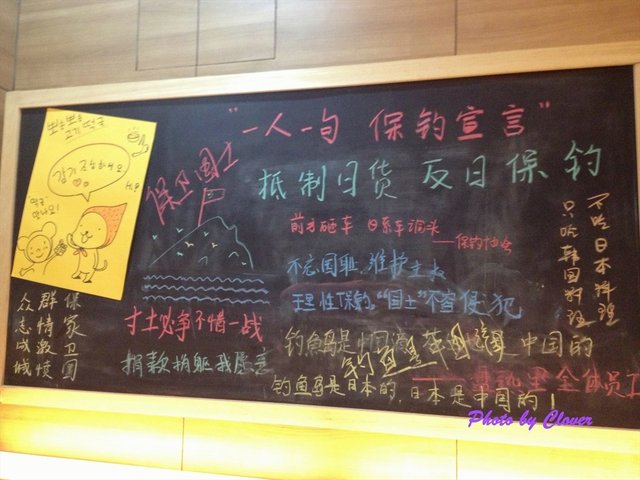 "一人一句 保钓宣言"
抵制日货 反日保钓
保卫国土
前方砸车 日系车调头
——保钓协会
不忘国耻,维护主权
理性保钓,"国土"不容侵犯
寸土必争不惜一战
捐款捐躯我愿意
钓鱼岛是中国的
钓鱼岛是中国的
钓鱼岛是日本的,日本是中国的!
全体员工
不吃日本料理
只吃韩国料理
保家卫国
群情激愤
众志成城
뽀송뽀송
고기 떡국
감기 조심하세요
H.P
떡국
맛나요!
Photo by Clover